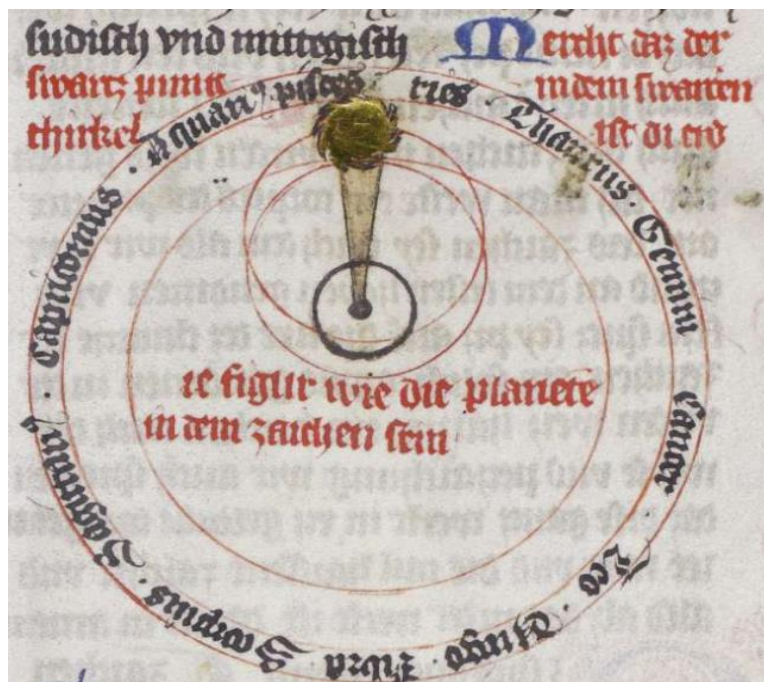 sudisch vnd mittegisch
Mercht daz der
swartz punkt
in dem swartzen
thirkel
ist di erd
Aquarius pisces ries · Thaurus · Gemini Cancer Leo · Virgo Libra Scorpius · Sagittarius · Capricornus
ie figur wie die planete
in dem zaichen sein